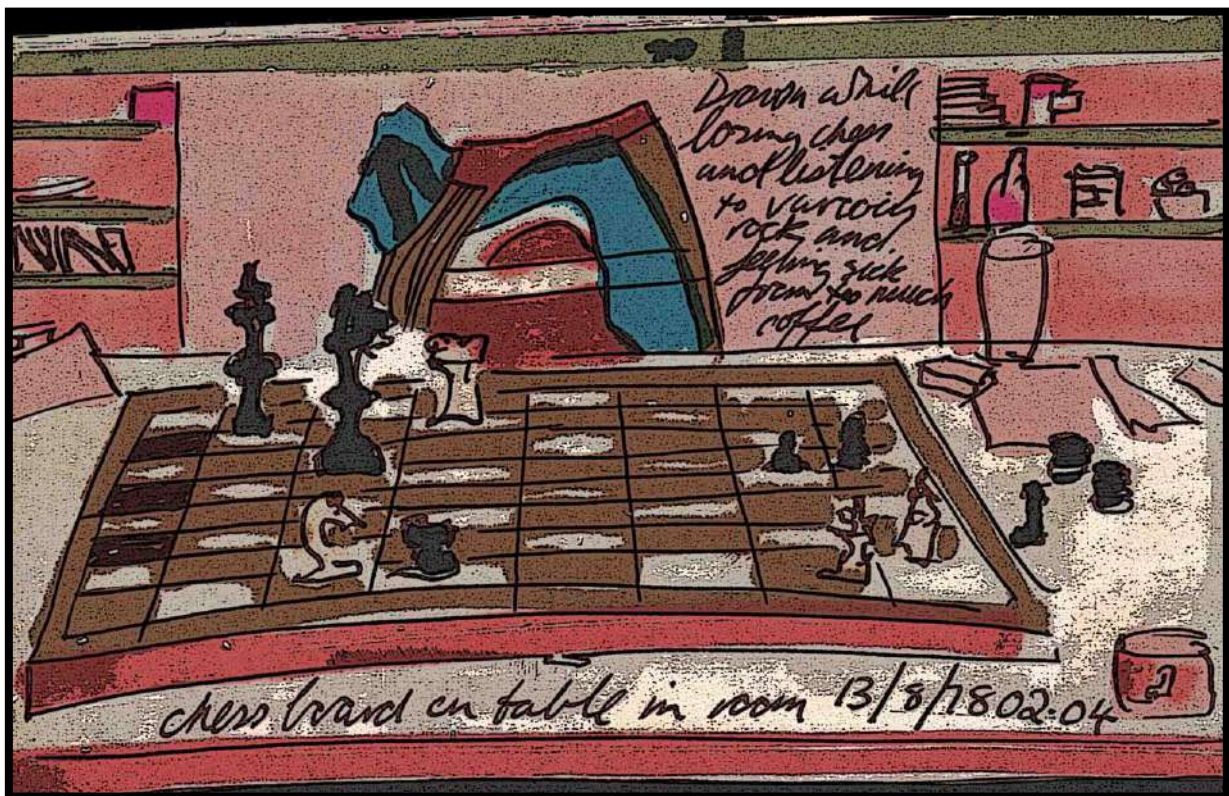 Drawn while
losing chess
and listening
to various
rock and
feeling sick
from too much
coffee
chess board on table in room 13/8/78 02.04